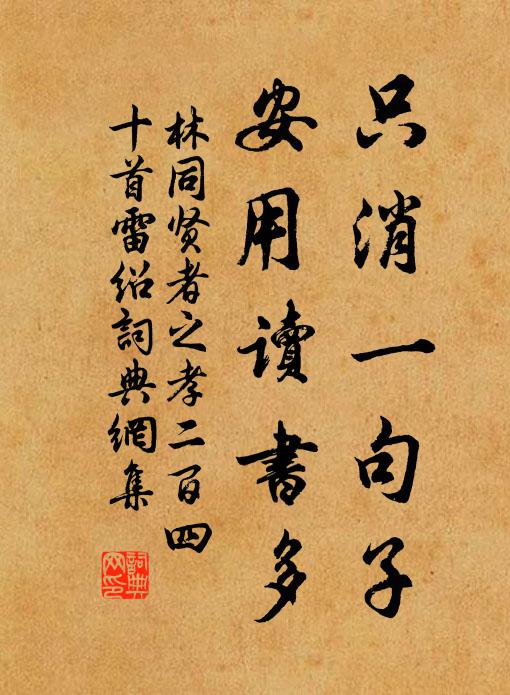 只消一句子
安用读書多
林同贤者之孝二百四
十首雷绍詞典網集
詞典网印